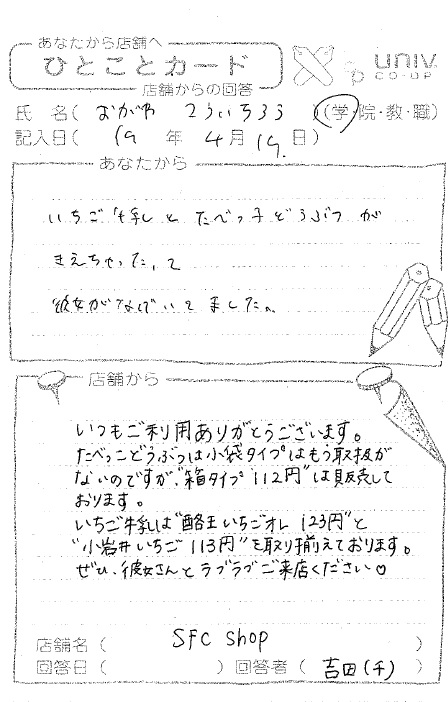 あなたから店舗へ
ひとことカード
店舗からの回答
UNIV.
CO-OP
氏 名( おがわ こういちろう )(学・院・教・職)
記入日( 19 年 4月 19.日)
あなたから
いちご牛乳と たべっ子どうぶつ が
きえちゃった,, て
彼女がなげいてました。
店舗から
いつもご利用ありがとうございます。
たべっこどうぶつは小袋タイプはもう取扱が
ないのですが、"箱タイプ 112円"は販売して
おります。
いちご牛乳は"酪王いちごオレ 123円"と
"小岩井いちご 113円"を取り揃えております。
ぜひ、彼女さんとラブラブご来店ください♡
店舗名( SFC shop )
回答日( )回答者( 吉田(千) )